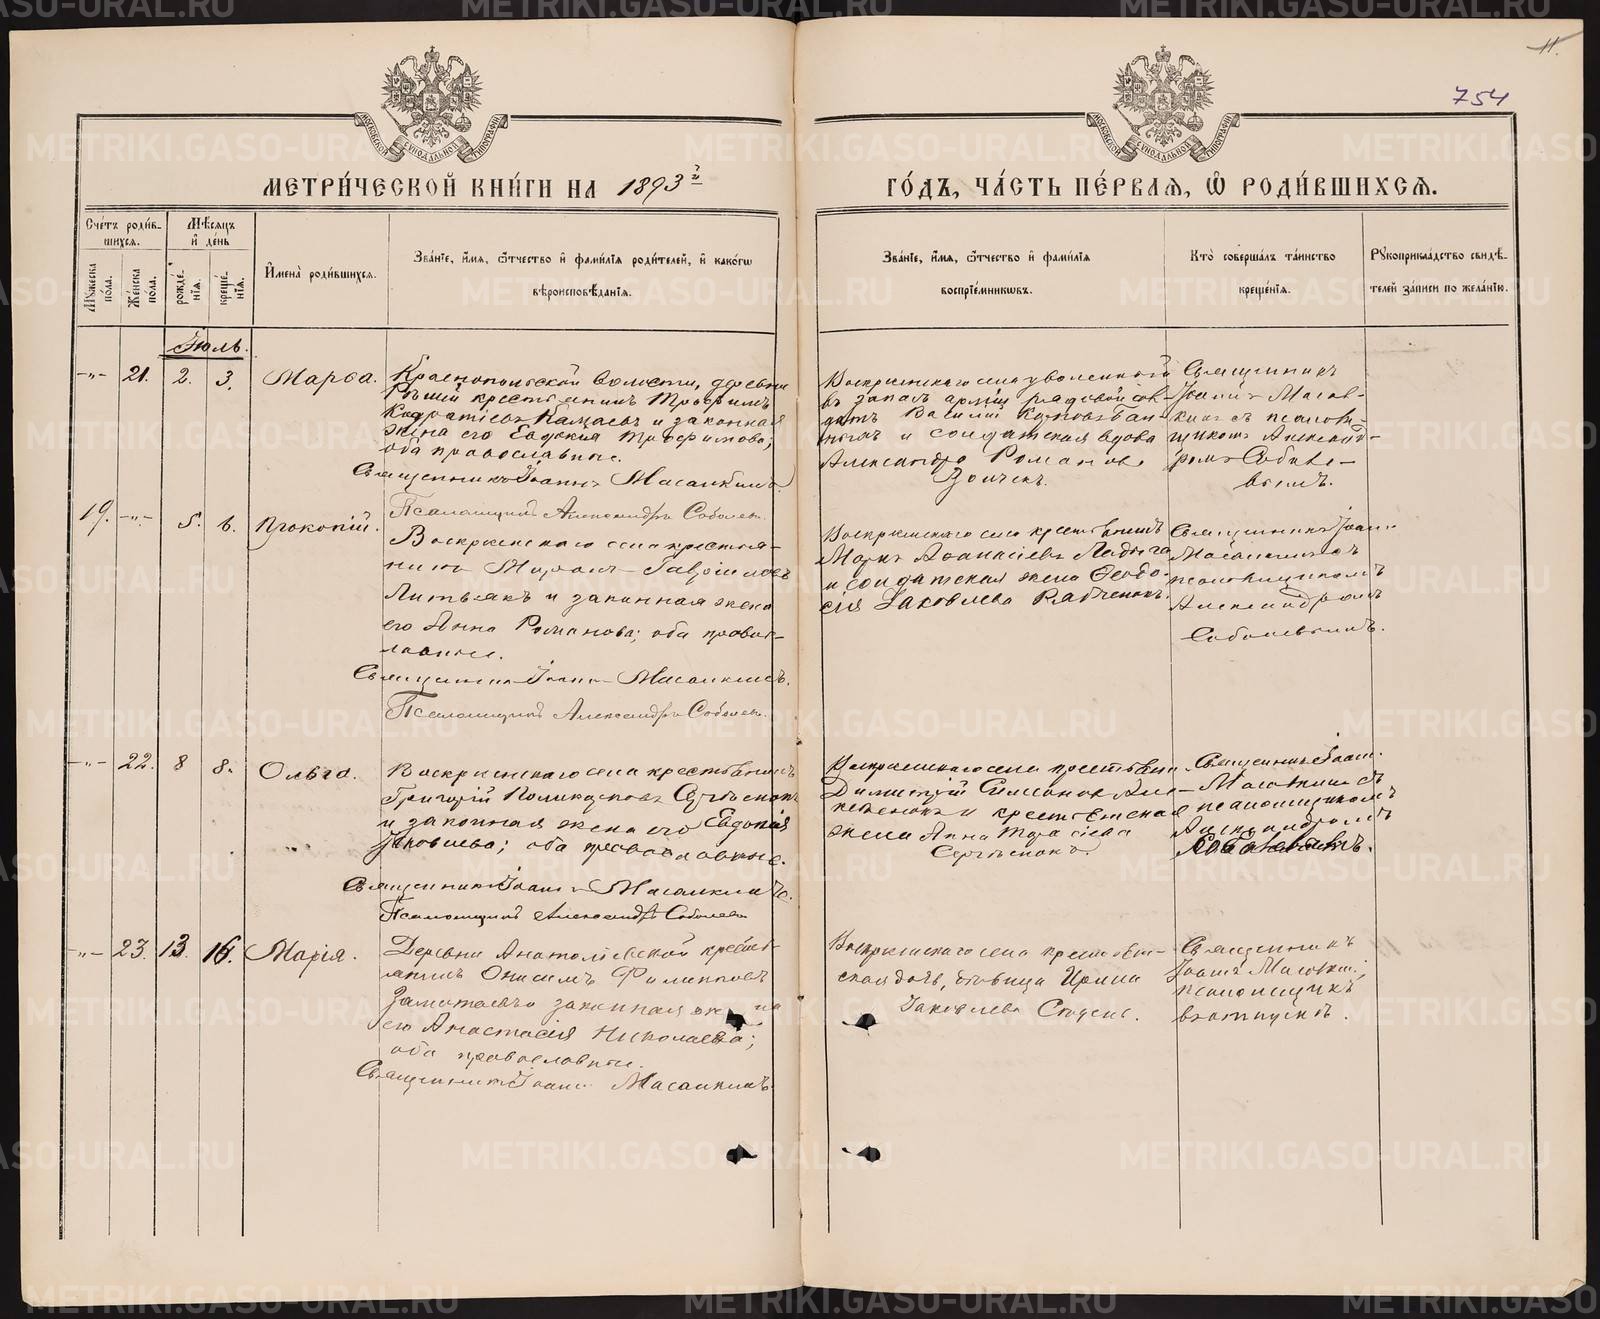 11.
754
МОСКОВСКОЙ СѴНОДАЛЬНОЙ ТИПОГРАФІИ
МОСКОВСКОЙ СѴНОДАЛЬНОЙ ТИПОГРАФІИ
МЕТРИ́ЧЕСКОЙ КНИ́ГИ НА 1893й
ГО́ДЪ, ЧА́СТЬ ПЕ́РВАЯ, Ѽ РОДИ́ВШИХСЯ.
Сче́тъ роди́в-
шихся.
Мѣ́сяцъ
и҆ де́нь
Мꙋ́жеска
по́ла.
Же́нска
по́ла.
рожде́-
нїя.
креще́-
нїя.
И҆мена̀ роди́вшихся.
Зва́нїе, и҆́мя, ѻ҆́тчество и҆ фами́лїя роди́телей, и҆ како́гѡ
вѣроисповѣ́данїя.
Зва́нїе, и҆́мя, ѻ҆́тчество и҆ фами́лїя
воспрїе́мникѡвъ.
Кто̀ соверша́лъ та́инство
креще́нїя.
Рꙋкоприкла́дство свидѣ́-
телей за́писи по жела́нїю.
Іюль.
-„- 21. 2. 3. Марѳа.
Краснопольской волости, деревни
крестьянинъ Трофимъ
и законная
жена его Евдокія Трофимова;
оба православные.
Священникъ Іоаннъ Масалкинъ.
Псаломщикъ Александръ Соболевъ
Воскресенскаго села уволенный
въ запасъ арміи рядовой сол-
датъ Василій
и солдатская вдова
Александра Романова
Священникъ
Іоаннъ Масал-
кинъ съ псалом-
щикомъ Александ-
ромъ Соболе-
вымъ.
19. -„- 5. 6. Прокопій.
Воскресенскаго села крестья-
нинъ Гавріиловъ
Литвякъ и законная жена
его Анна Романова; оба правос-
лавные.
Священникъ Іоаннъ Масалкинъ.
Псаломщикъ Александръ Соболевъ.
Воскресенскаго села крестьянинъ
Маркъ Аѳанасіевъ Ладыга
и солдатская жена Ѳеодо-
сія Іаковлева Рябченокъ.
Священникъ Іоаннъ
Масалкинъ съ
псаломщикомъ
Александромъ
Соболевымъ.
-„- 22. 8 8. Ольга.
Воскресенскаго села крестьянинъ
Григорій Поликарповъ Сергѣенокъ
и законная жена его Евдокія
Іаковлева; оба православные.
Священникъ Іоаннъ Масалкинъ.
Псаломщикъ Александръ Соболевъ
Воскресенскаго села крестьянинъ
Димитрій Симеоновъ Але-
и крестьянская
жена Анна
Сергѣенокъ.
Священникъ Іоаннъ
Масалкинъ съ
псаломщикомъ
Александромъ
Соболевымъ.
-„- 23. 13. 16. Марія.
Деревни Анатоліевской кресть-
янинъ Онисимъ Филипповъ
законная жена
его Анастасія Николаева;
оба православные.
Священникъ Іоаннъ Масалкинъ.
Воскресенскаго села крестьян-
ская дочь, дѣвица Ирина
Іаковлева
Священникъ
Іоаннъ Масалкинъ;
псаломщикъ
въ отпускѣ.
METRIKI.GASO-URAL.RU